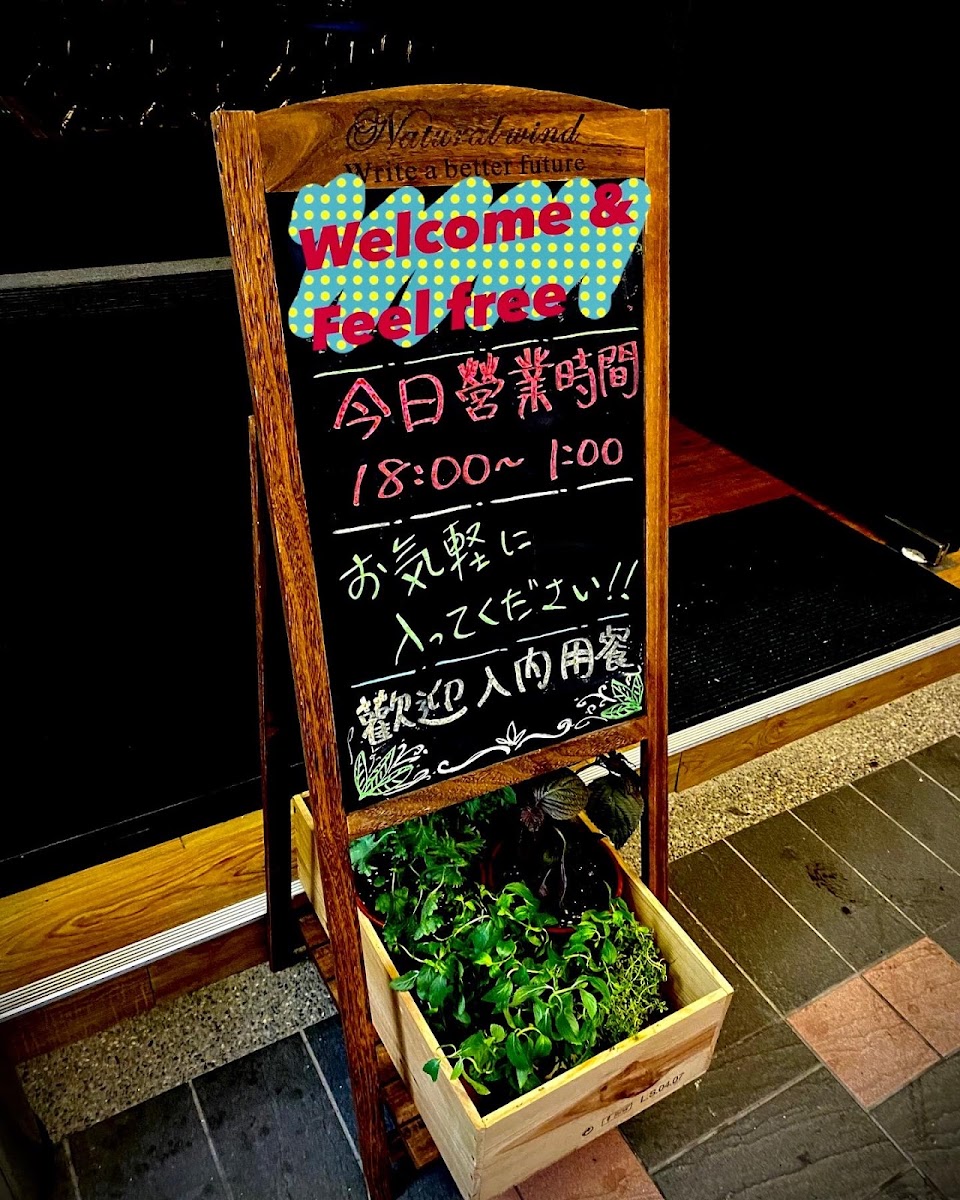 Natural wind
Write a better future
Welcome &
Feel free
今日營業時間
18:00~ 1:00
お気軽に
入ってください!!
歡迎入內用餐
L.S.04.07